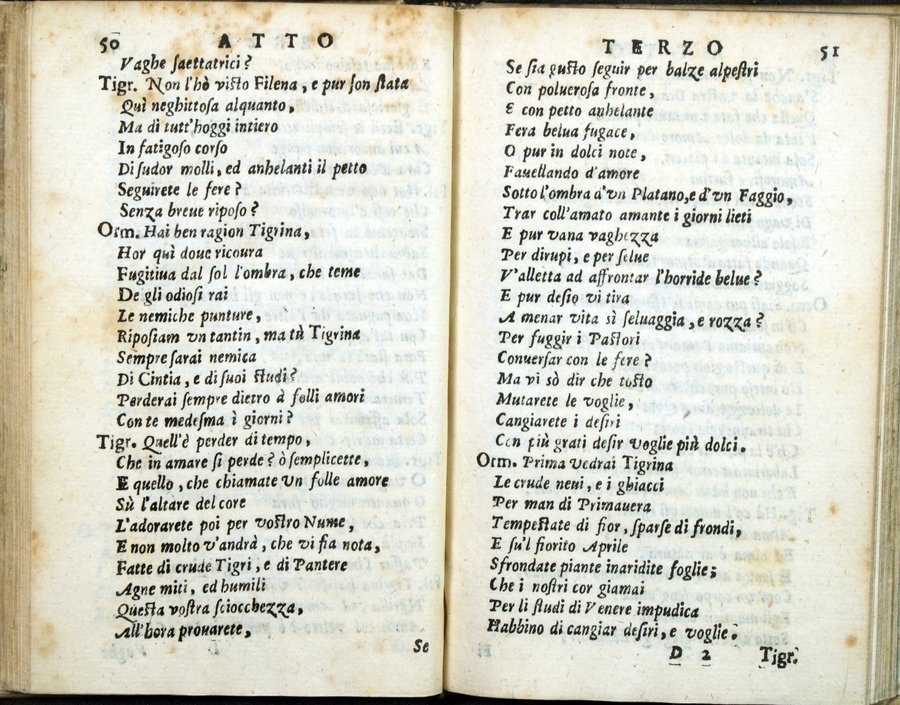 50 ATTO
Vaghe saettatrici?
Tigr. Non l'hò visto Filena, e pur son stata
Quì neghittosa alquanto,
Ma di tutt'hoggi intiero
In fatigoso corso
Di sudor molli, ed anhelanti il petto
Seguirete le fere?
Senza breue riposo?
Orm. Hai ben ragion Tigrina,
Hor quì doue ricoura
Fugitiua dal sol l'ombra, che teme
De gli odiosi rai
Le nemiche punture,
Riposiam vn tantin, ma tù Tigrina
Sempre sarai nemica
Di Cintia, e di suoi studi?
Perderai sempre dietro à folli amori
Con te medesma i giorni?
Tigr. Quell'è perder di tempo,
Che in amare si perde? ò semplicette,
E quello, che chiamate vn folle amore
Sù l'altare del core
L'adorarete poi per vostro Nume,
E non molto v'andrà, che vi fia nota,
Fatte di crude Tigri, e di Pantere
Agne miti, ed humili
Questa vostra sciocchezza,
All'hora prouarete,
Se
TERZO 51
Se sia gusto seguir per balze alpestri
Con poluerosa fronte,
E con petto anhelante
Fera belua fugace,
O pur in dolci note,
Fauellando d'amore
Sotto l'ombra d'vn Platano, e d'vn Faggio,
Trar coll'amato amante i giorni lieti
E pur vana vaghezza
Per dirupi, e per selue
V'alletta ad affrontar l'horride belue?
E pur desio vi tira
A menar vita sì seluaggia, e rozza?
Per fuggir i Pastori
Conuersar con le fere?
Ma vi sò dir che tosto
Mutarete le voglie,
Cangiarete i desiri
Con più grati desir voglie più dolci.
Orm. Prima vedrai Tigrina
Le crude neui, e i ghiacci
Per man di Primauera
Tempestate di fior, sparse di frondi,
E su'l fiorito Aprile
Sfrondate piante inaridite foglie;
Che i nostri cor giamai
Per li studi di Venere impudica
Habbino di cangiar desiri, e voglie.
D 2 Tigr.